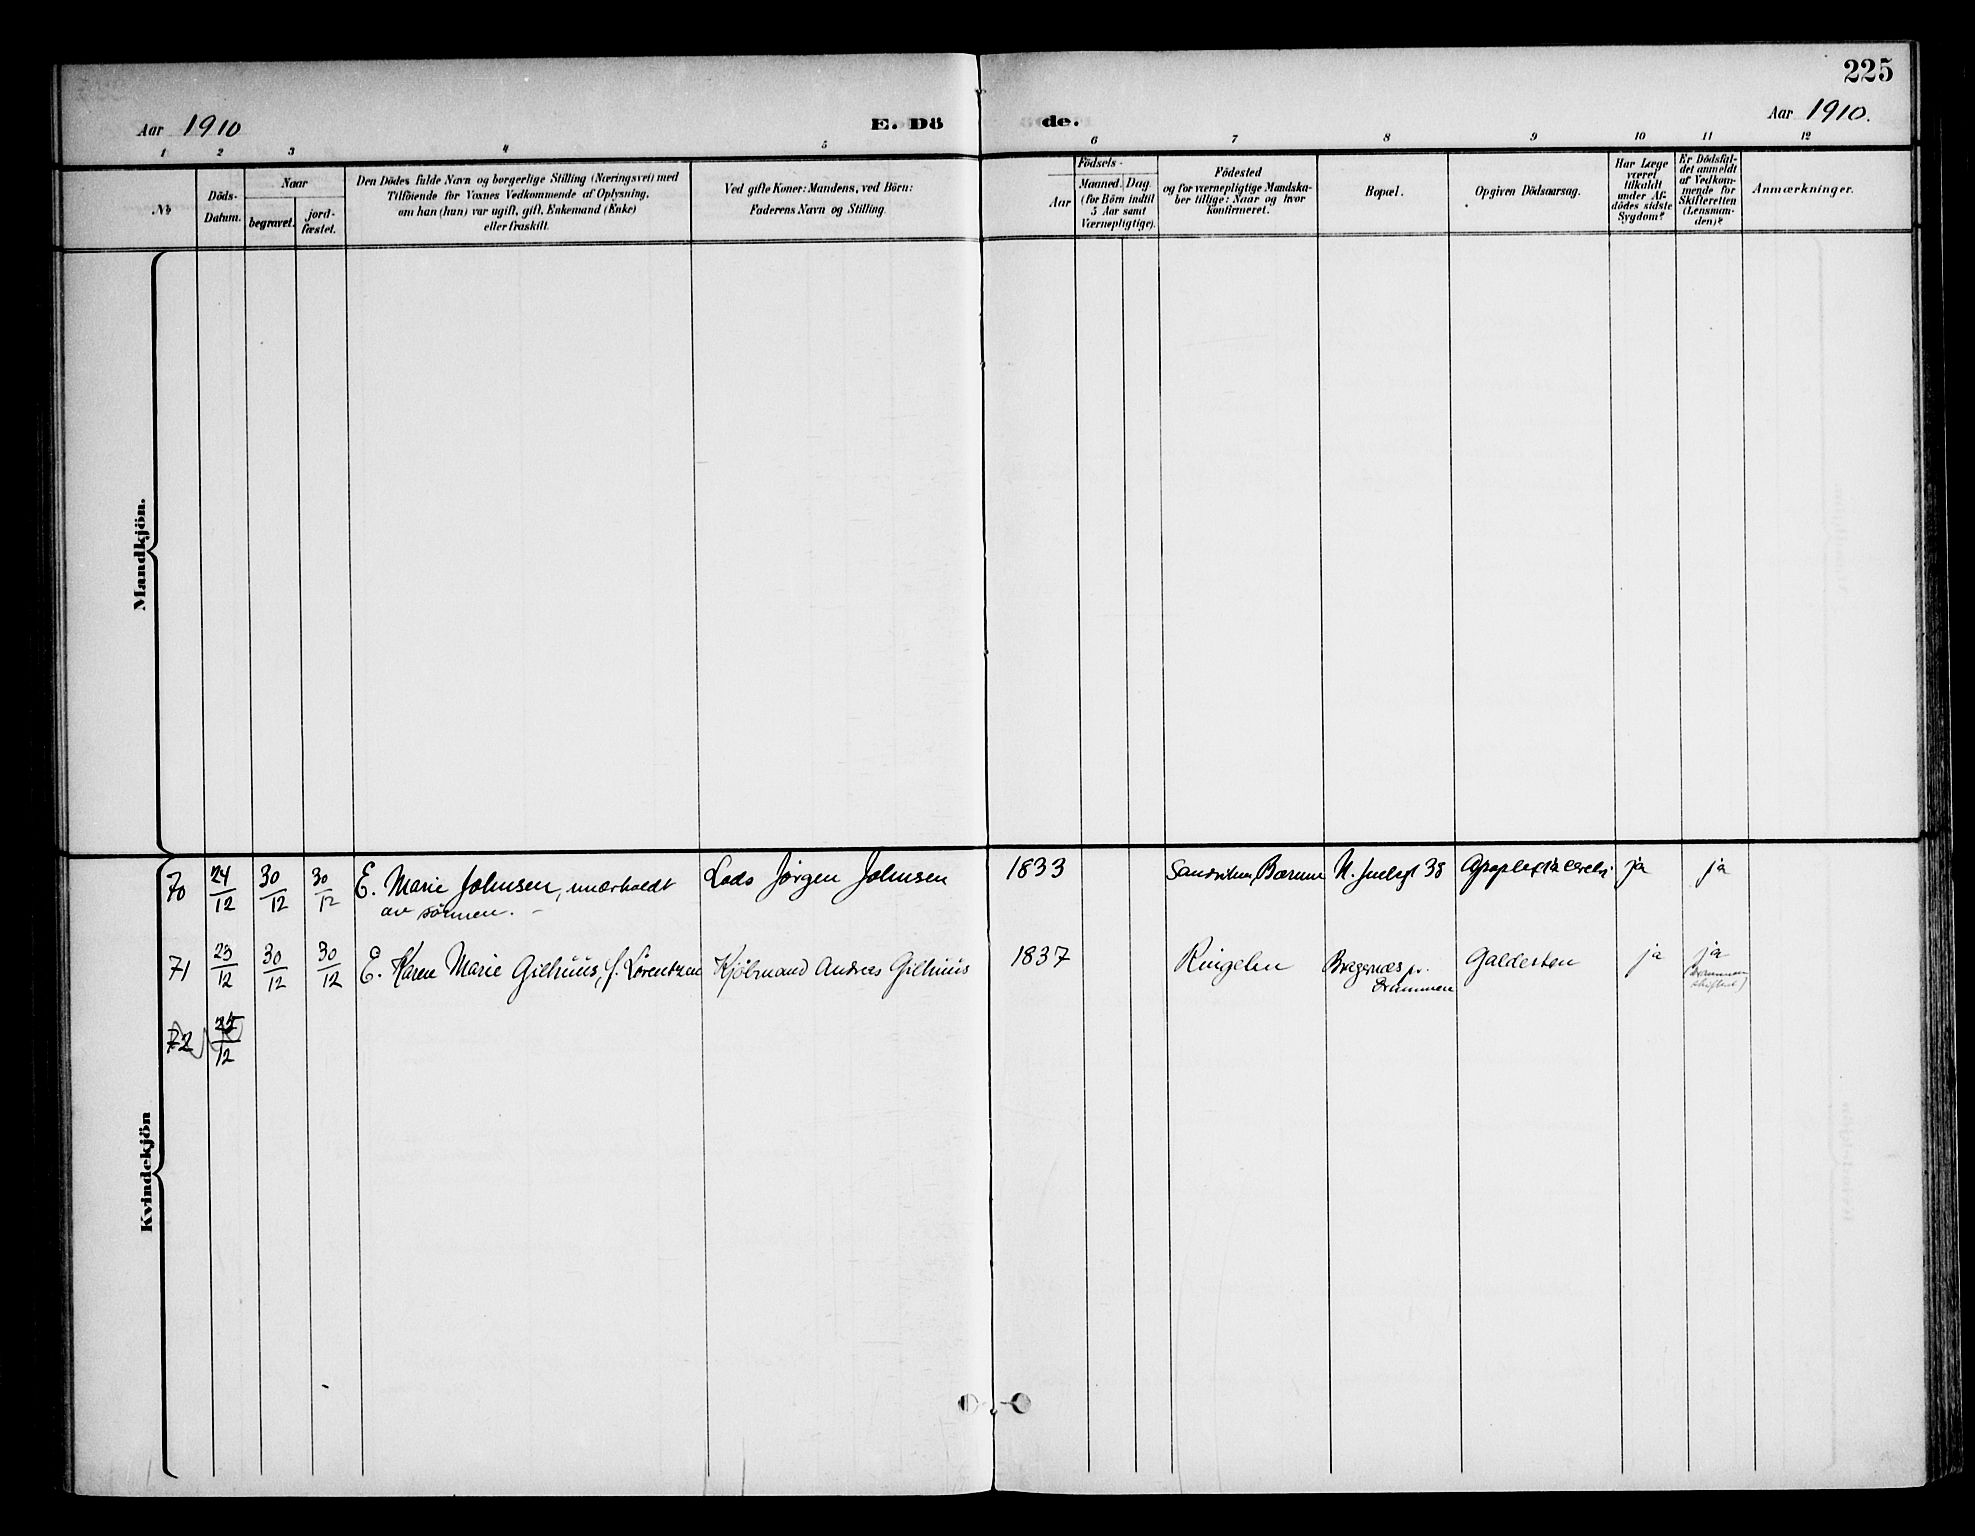 225
Aar 1910
E. Dö de.
Aar 1910.
1 2 3 4 5 6 7 8 9 10 11 12
№
Döds-
Datum.
Naar
begravet.
jord-
fæstet.
Den Dödes fulde Navn og borgerlige Stilling (Næringsvei) med
Tilföiende for Voxnes Vedkommende af Oplysning,
om han (hun) var ugift, gift, Enkemand (Enke)
eller fraskilt.
Ved gifte Koner: Mandens, ved Börn:
Faderens Navn og Stilling.
Födsels-
Aar
Maaned. Dag.
(for Börn indtil
5 Aar samt
Værnepligtige).
Födested
og for værnepligtige Mandska-
ber tillige: Naar og hvor
konfirmeret.
Bopæl.
Opgiven Dödsaarsag.
Har Læge
været
tilkaldt
under Af-
dödes sidste
Sygdom?
Er Dödsfal-
det anmeldt
af Vedkom-
mende for
Skifteretten
(Lensman-
den)?
Anmærkninger.
Mandkjön.
Kvindekjön
70 24/12 30/12 30/12 E. Marie Johnsen, underholdt Lods Jörgen Johnsen 1833 Sandviken, Bærum N. 38 ja ja
av sönnen.
71 23/12 30/12 30/12 E. Karen Marie Gilhuus, f. Lorentzen Kjöbmand Andreas Gilhuus 1837 Ringelen Bragernæs pr. Galdesten ja ja
Drammen
72 /12